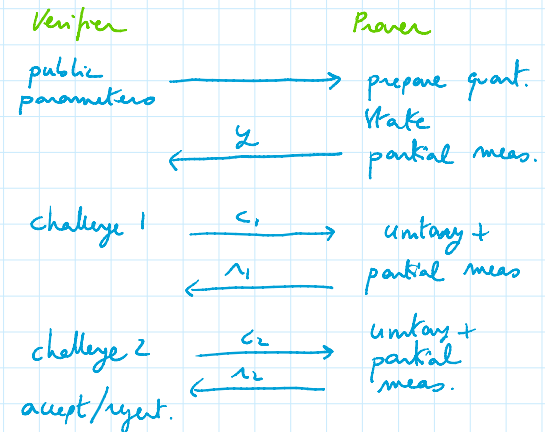 Verifier Prover
public parameters → prepare quant. state
← y partial meas.
challenge 1 → c₁ unitary +
← r₁ partial meas
challenge 2 → c₂ unitary + partial
← r₂ meas.
accept/reject.